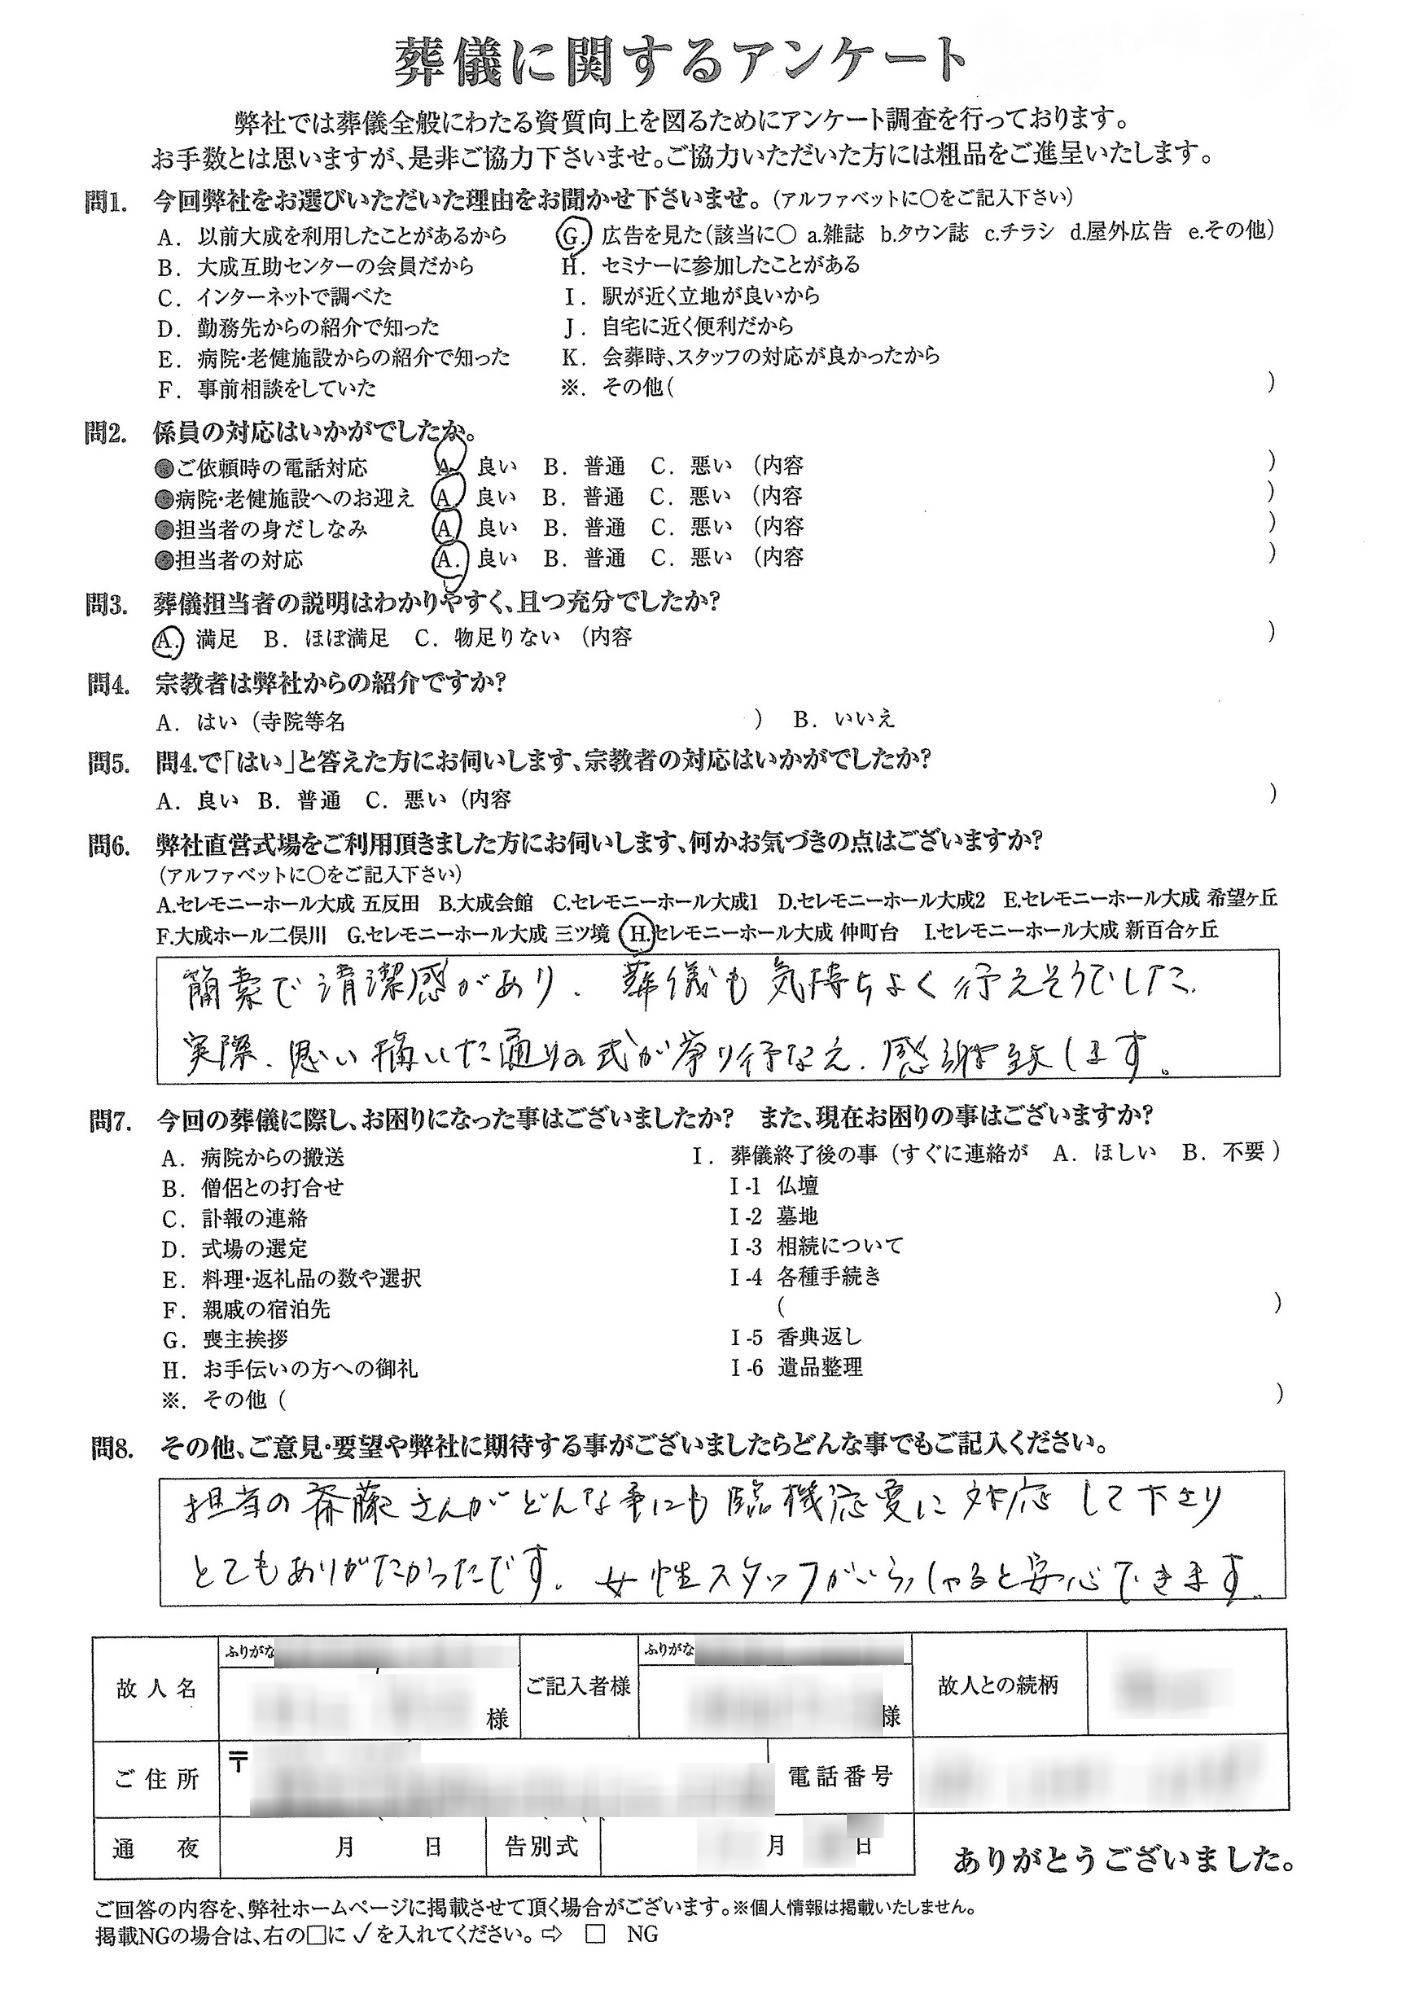 葬儀に関するアンケート
弊社では葬儀全般にわたる資質向上を図るためにアンケート調査を行っております。
お手数とは思いますが、是非ご協力下さいませ。ご協力いただいた方には粗品をご進呈いたします。
問1. 今回弊社をお選びいただいた理由をお聞かせ下さいませ。(アルファベットに○をご記入下さい)
A. 以前大成を利用したことがあるから G. 広告を見た(該当に○ a.雑誌 b.タウン誌 c.チラシ d.屋外広告 e.その他)
B. 大成互助センターの会員だから H. セミナーに参加したことがある
C. インターネットで調べた I. 駅が近く立地が良いから
D. 勤務先からの紹介で知った J. 自宅に近く便利だから
E. 病院・老健施設からの紹介で知った K. 会葬時、スタッフの対応が良かったから
F. 事前相談をしていた ※. その他( )
問2. 係員の対応はいかがでしたか。
●ご依頼時の電話対応 A. 良い B. 普通 C. 悪い (内容 )
●病院・老健施設へのお迎え A. 良い B. 普通 C. 悪い (内容 )
●担当者の身だしなみ A. 良い B. 普通 C. 悪い (内容 )
●担当者の対応 A. 良い B. 普通 C. 悪い (内容 )
問3. 葬儀担当者の説明はわかりやすく、且つ充分でしたか?
A. 満足 B. ほぼ満足 C. 物足りない (内容 )
問4. 宗教者は弊社からの紹介ですか?
A. はい (寺院等名 ) B. いいえ
問5. 問4.で「はい」と答えた方にお伺いします、宗教者の対応はいかがでしたか?
A. 良い B. 普通 C. 悪い (内容 )
問6. 弊社直営式場をご利用頂きました方にお伺いします、何かお気づきの点はございますか?
(アルファベットに○をご記入下さい)
A.セレモニーホール大成 五反田 B.大成会館 C.セレモニーホール大成1 D.セレモニーホール大成2 E.セレモニーホール大成 希望ヶ丘
F.大成ホール二俣川 G.セレモニーホール大成 三ツ境 H.セレモニーホール大成 仲町台 I.セレモニーホール大成 新百合ヶ丘
簡素で清潔感があり、葬儀も気持ちよく行えそうでした。
実際、思い描いた通りの式が挙り行なえ、感謝致します。
問7. 今回の葬儀に際し、お困りになった事はございましたか? また、現在お困りの事はございますか?
A. 病院からの搬送 I. 葬儀終了後の事 (すぐに連絡が A. ほしい B. 不要 )
B. 僧侶との打合せ I-1 仏壇
C. 訃報の連絡 I-2 墓地
D. 式場の選定 I-3 相続について
E. 料理・返礼品の数や選択 I-4 各種手続き
F. 親戚の宿泊先 ( )
G. 喪主挨拶 I-5 香典返し
H. お手伝いの方への御礼 I-6 遺品整理
※. その他 ( )
問8. その他、ご意見・要望や弊社に期待する事がございましたらどんな事でもご記入ください。
担当の斎藤さんがどんな事にも臨機応変に対応して下さり
とてもありがたかったです。女性スタッフがいらっしゃると安心できます。
故人名 ふりがな 様 ご記入者様 ふりがな 様 故人との続柄
ご住所 〒 電話番号
通夜 月 日 告別式 月 日 ありがとうございました。
ご回答の内容を、弊社ホームページに掲載させて頂く場合がございます。※個人情報は掲載いたしません。
掲載NGの場合は、右の□に✓を入れてください。⇨ □ NG